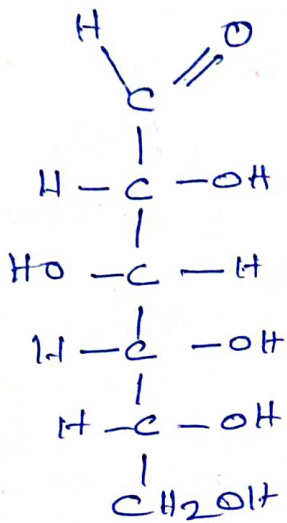 H O
C
H - C - OH
HO - C - H
H - C - OH
H - C - OH
CH2OH